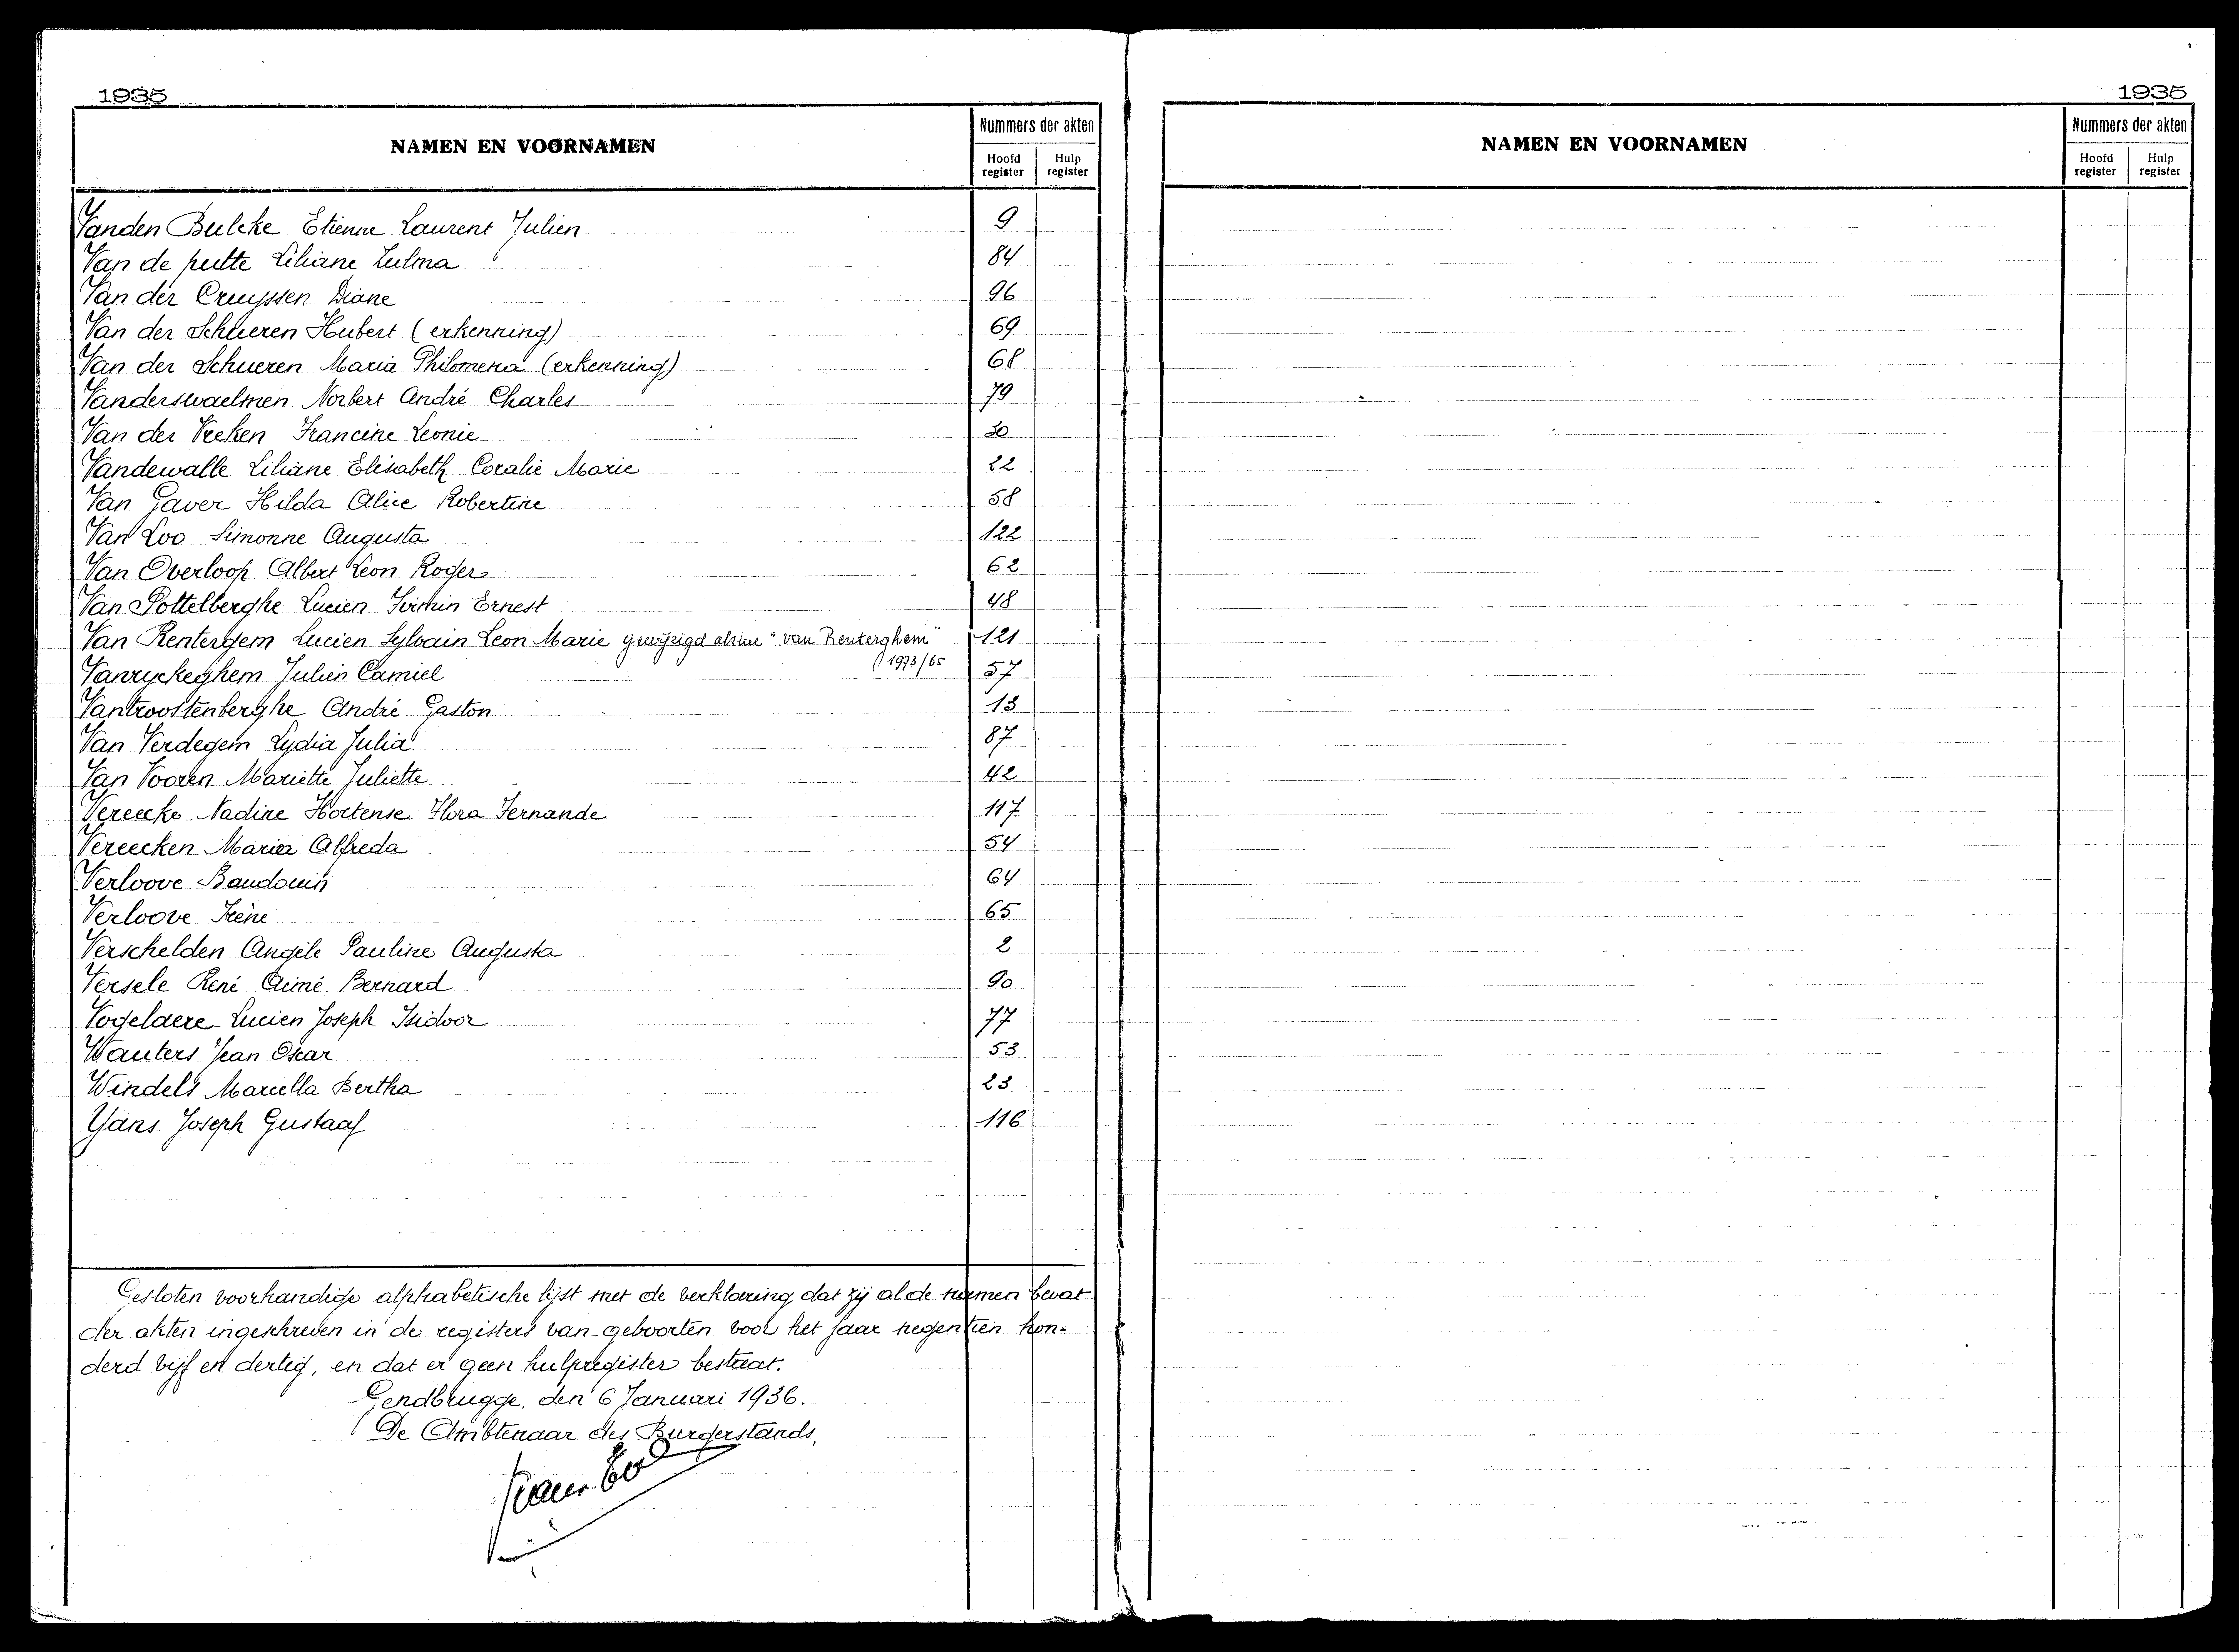 1935
NAMEN EN VOORNAMEN
Nummers der akten
Hoofd register
Hulp register
Vanden Bulcke Etienne Laurent Julien 9
Van de putte Liliane Zulma 84
Van der Cruyssen Diane 96
Van der Schueren Hubert (erkenning) 69
Van der Schueren Maria Philomena (erkenning) 68
Vanderswaelmen Norbert André Charles 79
Van der Veeken Francine Leonie 30
Vandewalle Liliane Elisabeth Coralie Marie 22
Van Gaver Hilda Alice Robertine 58
Van Loo Simonne Augusta 122
Van Overloop Albert Leon Roger 62
Van Pottelberghe Lucien Ernest 48
Van Rentergem Lucien Sylvain Leon Marie gewijzigd alsme "van Renterghem" 121
1973/65
Vanryckeghem Julien Camiel 57
Vantroostenberghe André Gaston 13
Van Verdegem Lydia Julia 87
Van Vooren Mariette Juliette 42
Vereecke Nadine Hortense Flora Fernande 117
Vereecken Maria Alfreda 54
Verloove Baudouin 64
Verloove Irène 65
Verschelden Angèle Pauline Augusta 2
Versele René Aimé Bernard 90
Vogelaere Lucien Joseph Isidoor 77
Wauters Jean Oscar 53
Windels Marcella Bertha 23
Yans Joseph Gustaaf 116
Gesloten voorhandige alphabetische lijst met de verklaring dat zij al de namen bevat
der akten ingeschreven in de registers van geboorten voor het jaar negentien hon-
derd vijf en dertig, en dat er geen hulpregister bestaat.
Gendbrugge, den 6 Januari 1936.
De Ambtenaar des Burgerstands,
1935
NAMEN EN VOORNAMEN
Nummers der akten
Hoofd register
Hulp register